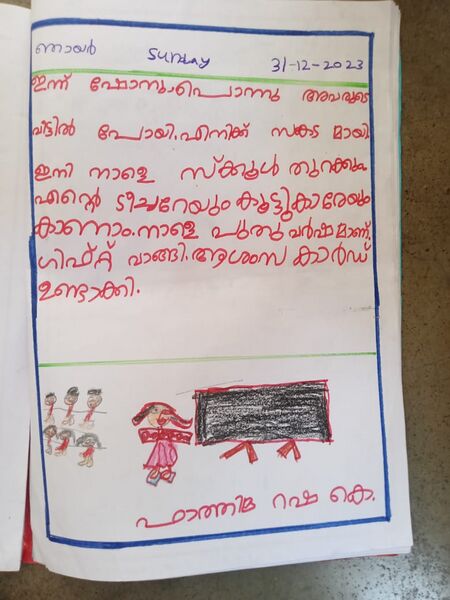 ഞായർ SUNDAY 31-12-2023
ഇന്ന് ഷോനു,പൊന്നു അവരുടെ
വീട്ടിൽ പോയി.എനിക്ക് സങ്കട മായി.
ഇനി നാളെ സ്ക്കൂൾ തുറക്കും.
എന്റെ ടീച്ചറേയും കൂട്ടുകാരേയും
കാണാം.നാളെ പുതു വർഷമാണ്.
ഗിഫ്റ്റ് വാങ്ങി.ആശംസ കാർഡ്
ഉണ്ടാക്കി.
ഫാത്തിമ റഷ കെ.